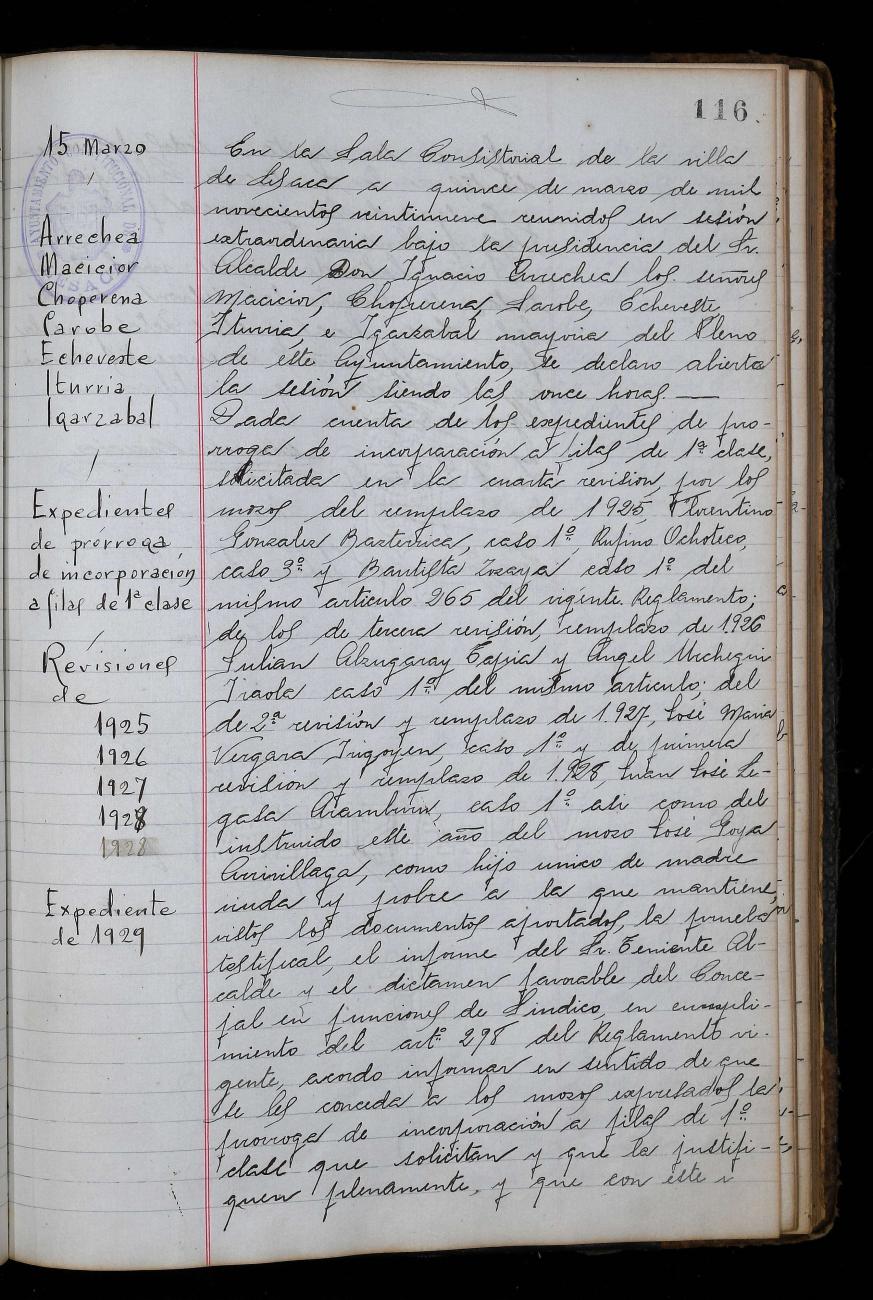 116
15 Marzo
Arrechea
Macicior
Choperena
Parobe
Echeveste
Iturria
Igarzabal
Expedientes
de prórroga
de incorporación
a filas de 1ª clase
Revisiones
de
1925
1926
1927
1928
1928
Expediente
de 1929
AYUNTAMIENTO CONSTITUCIONAL DE LESACA
En la Sala Consistorial de la villa
de Lesaca a quince de marzo de mil
novecientos veintinueve reunidos en sesión
extraordinaria bajo la presidencia del Sr.
Alcalde Don Ignacio Arrechea los señores
Macicior, Choperena, Sarobe, Echeveste,
Iturria, e Igarzabal mayoria del Pleno
de este Ayuntamiento, se declaro abierta
la sesión siendo las once horas. —
Dada cuenta de los expedientes de pro-
rroga de incorparación a filas de 1ª clase,
solicitada en la cuarta revision, por los
mozos del remplazo de 1925, Florentino
Gonzalez Bazterrica, caso 1º, Rufino Ochoteco,
caso 3º y Bautista Zozaya caso 1º del
mismo articulo 265 del vigente Reglamento;
de los de tercera revisión, remplazo de 1.926
Julian Alzugaray Tapia y Angel Urchegui
Iraola caso 1º del mismo articulo; del
de 2ª revisión y remplazo de 1.927, José Maria
Vergara Irigoyen, caso 1º y de primera
revisión y remplazo de 1.928, Juan José Le-
gasa Aramburu, caso 1º asi como del
instruido este año del mozo José Goya
Arrivillaga, como hijo unico de madre
viuda y pobre a la que mantiene,
vistos los documentos aportados, la prueba
testifical, el informe del Sr. Teniente Al-
calde y el dictamen favorable del Conce-
jal en funciones de Sindico, en cumpli-
miento del artº 298 del Reglamento vi-
gente, acordo informar en sentido de que
se les conceda a los mozos expresados la
prorroga de incorporación a filas de 1ª
clase que solicitan y que la justifi-
quen plenamente, y que con este